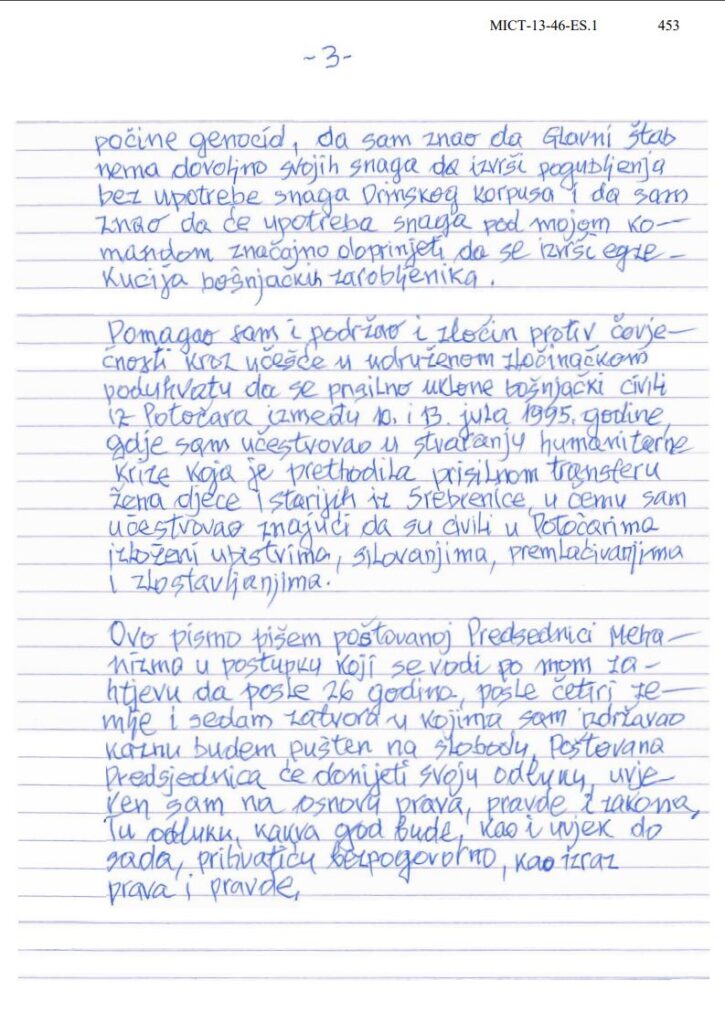 MICT-13-46-ES.1 453
-3-
počine genocid, da sam znao da Glavni štab
nema dovoljno svojih snaga da izvrši pogubljenja
bez upotrebe snaga Drinskog korpusa i da sam
znao da će upotreba snaga pod mojom ko-
mandom značajno doprinjeti da se izvrši egze-
kucija bošnjačkih zarobljenika.
Pomagao sam i podržao i zločin protiv čovje-
čnosti kroz učešće u udruženom zločinačkom
poduhvatu da se prisilno uklone bošnjački civili
iz Potočara između 10. i 13. jula 1995. godine,
gdje sam učestvovao u stvaranju humanitarne
krize koja je prethodila prisilnom transferu
žena djece i starijih iz Srebrenice, u čemu sam
učestvovao znajući da su civili u Potočarima
izloženi ubistvima, silovanjima, premlaćivanjima
i zlostavljanjima.
Ovo pismo pišem poštovanoj Predsednici Meha-
nizma u postupku koji se vodi po mom za-
htjevu da posle 26 godina, posle četiri ze-
mlje i sedam zatvora u kojima sam izdržavao
kaznu budem pušten na slobodu. Poštovana
Predsjednica će donijeti svoju odluku, uvje-
ren sam na osnovu prava, pravde i zakona,
Tu odluku, kakva god bude, kao i uvjek do
sada, prihvatiću bezpogovorno, kao izraz
prava i pravde,